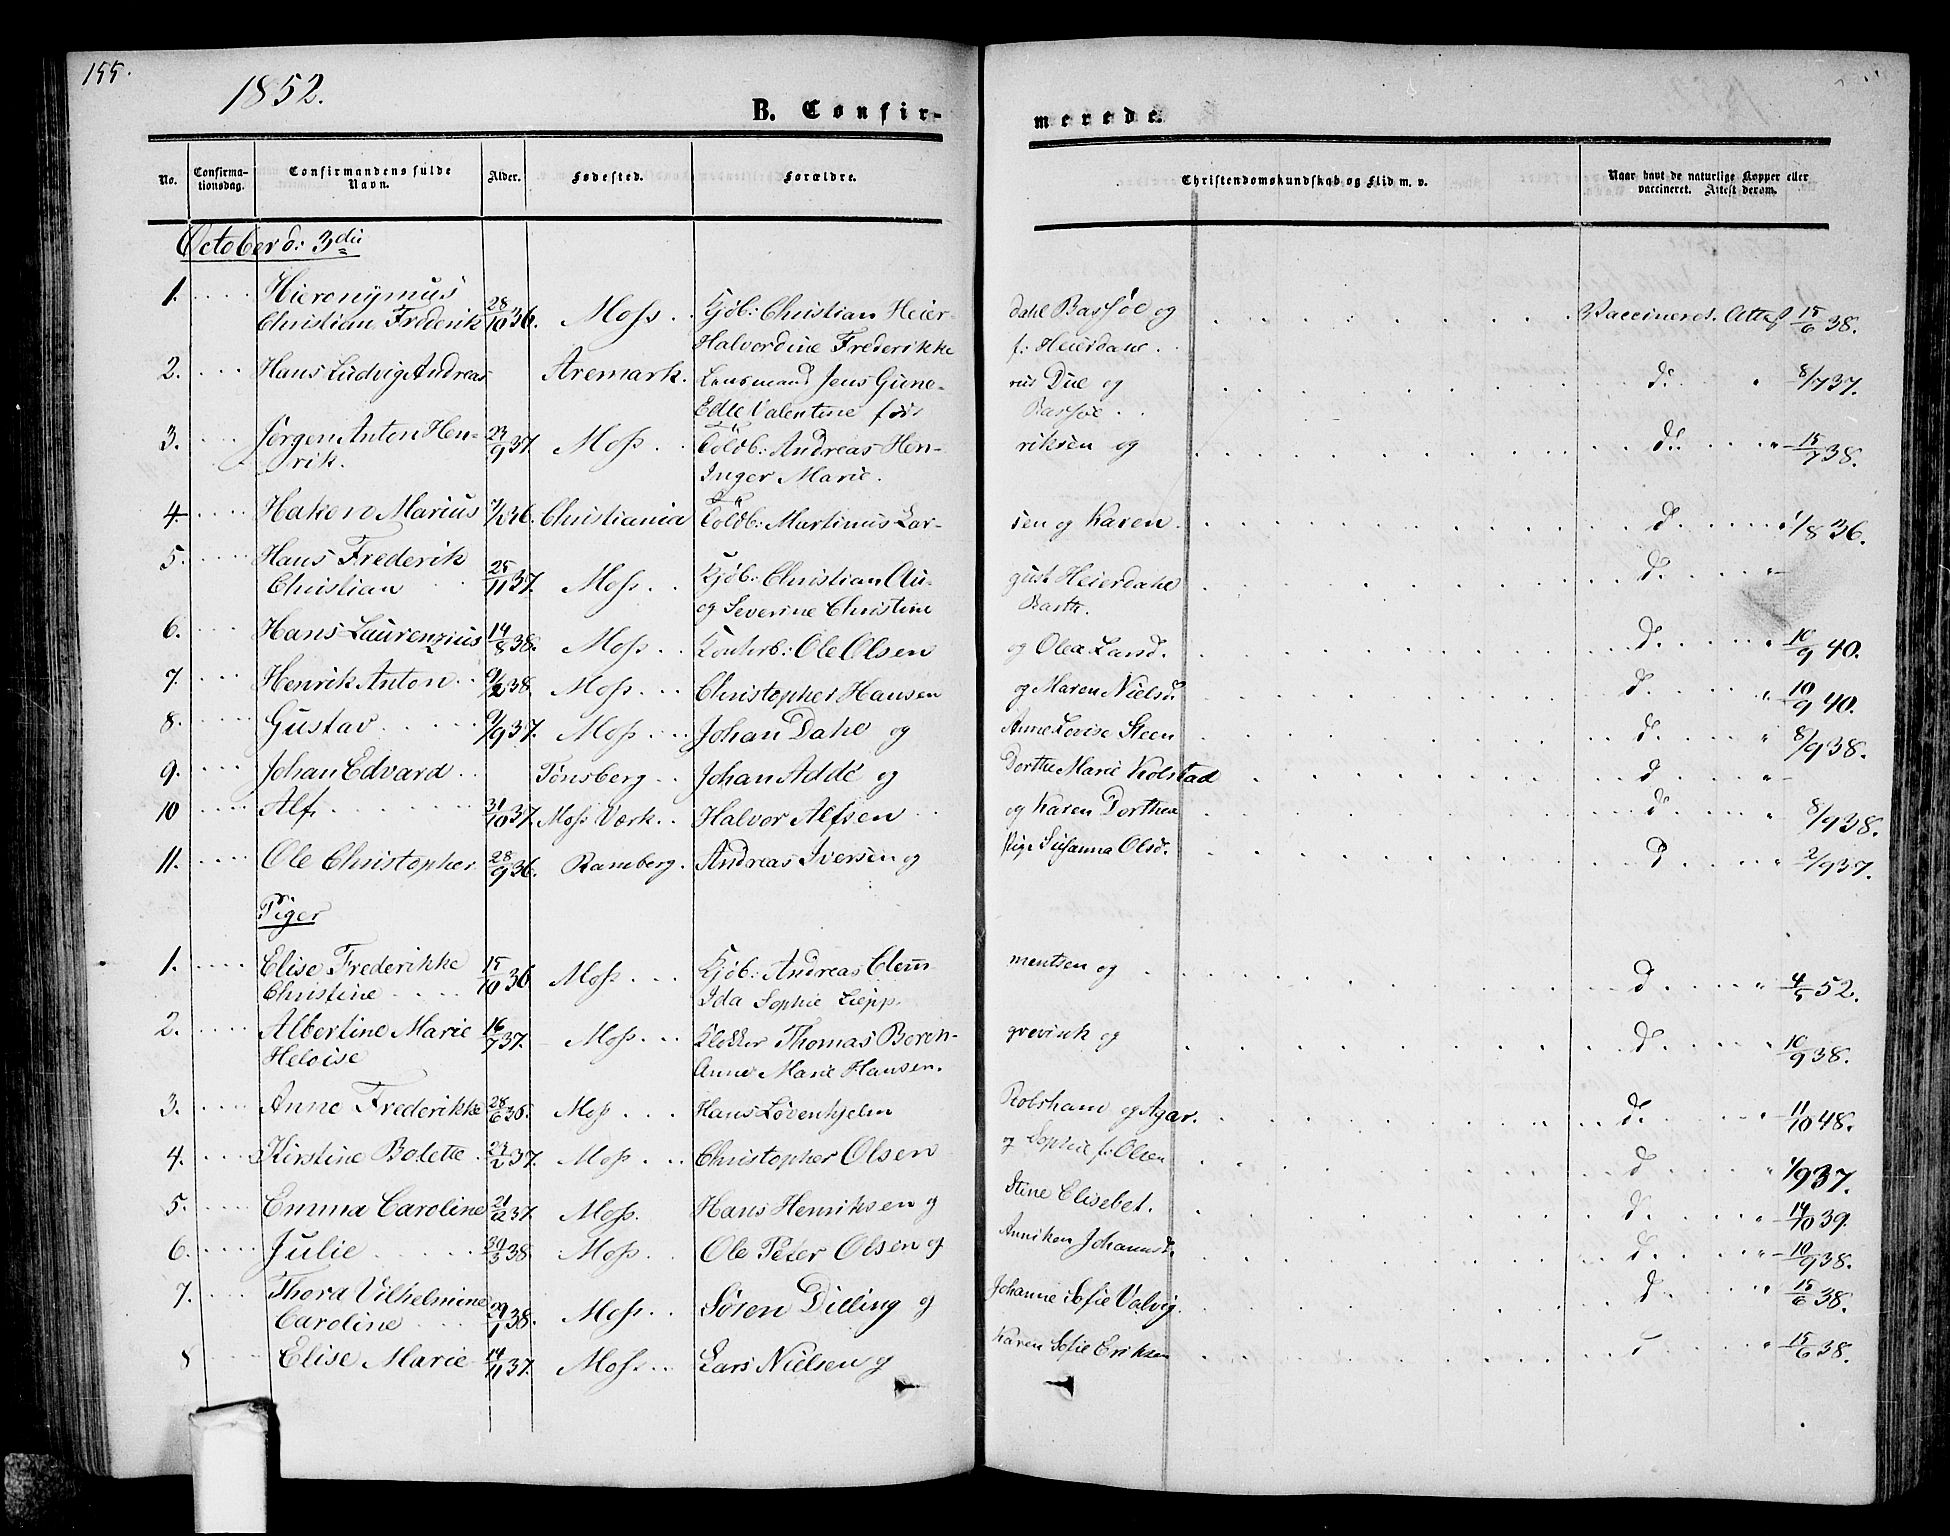 155.
1852.
B. Confir-
merede.
No.
Confirma-
tionsdag.
Confirmandens fulde
Navn.
Alder.
Fødested.
Forældre.
Christendomskundskab og Flid m. v.
Naar havt de naturlige Kopper eller
vaccineret. Attest derom.
October d: 3die
1. Hieronymus
Christian Frederik 28/10 36. Moss Kjøb: Christian Heier- dahl Bassøe og Vaccineret. Attest 15/6 38.
Halvordine Frederikke f. Heierdahl.
2. Hans Ludvig Andreas Aremark. Lensmand Jens Gune- rius Due og d. 8/7 37.
Edle Valentine født Bassøe.
3. Jørgen Anton Hen- 29/9 37. Moss Toldb: Andreas Hen- riksen og d. 15/7 38.
rik. Inger Marie.
4. Haken Marius Christiania Toldb: Martinus Lar- sen og Karen. d. 1/8 36.
5. Hans Frederik
Christian 25/11 37. Moss Kjøb: Christian Au- gust Heierdahl d.
og Severine Christine Barth.
6. Hans Laurenzius 14/8 38. Moss Ole Olsen og Olea Lund. d. 10/9 40.
7. Henrik Anton 9/2 38. Moss Christopher Hansen og Maren Nielsd. d. 10/9 40.
8. Gustav 9/9 37. Moss Johan Dahl og Anne Lovise Steen d. 8/9 38.
9. Johan Edvard Tønsberg Johan Adde og Dorthe Marie Kolstad d.
10 Alf. 31/10 37. Moss Værk. Halvor Alfsen og Karen Dorthea d. 8/9 38.
11. Ole Christopher 28/9 36. Ramberg. Andreas Iversen og Pige Susanna Olsd. d. 2/9 37.
Piger
1. Elise Frederikke 15/10 36 Moss Kjøb: Andreas Clem mentsen og d. 4/5 52.
Christine Ida Sophie Liepp.
2. Albertine Marie 16/7 37. Moss Klokker Thomas Beren- grevisck og d. 10/9 38.
Heloise Anne Marie Hansen.
3. Anne Frederikke 28/6 36. Moss Hans Løvenhjelm Rolsham og Agar. d. 11/10 48.
4. Kirstine Bolette 24/2 37. Moss Christopher Olsen og Sophie f. Olsen d. 1/9 37.
5. Emma Caroline 21/12 37. Moss. Hans Henriksen og Stine Elisebet. d. 14/10 39.
6. Julie 30/3 38 Moss Ole Peter Olsen og Anniken Johannsd. d. 10/9 38.
7. Thora Vilhelmine
Caroline 29/1 38. Moss. Søren Dilling og Johanne Sofie Valvig. d. 15/6 38.
8 Elise Marie 14/11 37. Moss Lars Nielsen og Karen Sofie Eriksen 15/6 38.